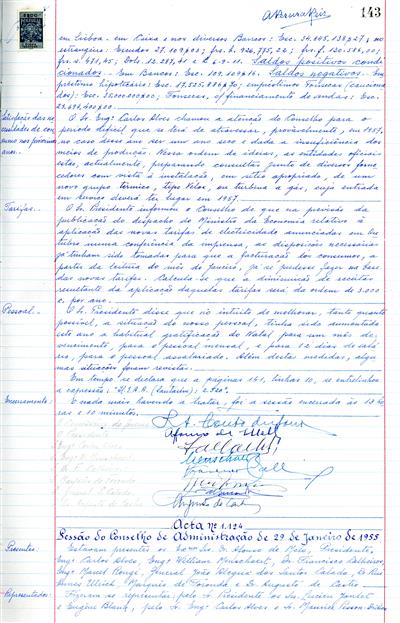 143
em Lisboa. em Caixa e nos diversos Bancos: Esc. 34.605.138$27; no
estrangeiro: Escudos 27.109$00; frs. b. 926.785,26; frs. f. 120.586,00;
frs. s. 671,45; Dols. 12.287,41 e £ 6-9-11. Saldos positivos condi-
cionados. - Em Bancos: Esc. 109.109$16. Saldos negativos. - Em-
préstimo hipotecário: Esc. 17.525.886$70; empréstimo Fonsecas (cauciona-
dos): Esc. 30.000.000$00; Fonsecas, c/ financiamento de vendas: Esc.
29.694.400$00.
Satisfação das ne-
cessidades de con-
sumo nos próximos
anos.
O Sr. Engº Carlos Alves chamou a atenção do Conselho para o
período difícil que se terá de atravessar, provàvelmente, em 1957,
no caso desse ano ser um ano seco e dada a insuficiência dos
meios de produção. Nessa ordem de ideias, as entidades oficiais
estão, actualmente, preparando consultas junto de diversos forne-
cedores com vista à instalação, em sítio apropriado, de um
novo grupo térmico, tipo Velox, ou turbina a gás, cuja entrada
em serviço deverá ter lugar em 1957.
Tarifas.
O Sr. Presidente informou o Conselho de que na previsão da
publicação do despacho do Ministro da Economia relativo à
aplicação das novas tarifas de electricidade anunciadas em Ou-
tubro numa conferência da imprensa, as disposições necessárias
já tinham sido tomadas para que a facturação dos consumos, a
partir da leitura do mês de Janeiro, já se pudesse fazer na base
das novas tarifas. Calcula-se que a diminuição de receitas
resultante da aplicação daquelas tarifas será da ordem de 3.000
c. por ano.
Pessoal.
O Sr. Presidente disse que no intuito de melhorar, tanto quanto
possível, a situação do nosso pessoal, tinha sido aumentada
este ano a habitual gratificação do Natal, para um mês de
vencimento, para o pessoal mensal, e para 12 dias de salá-
rio, para o pessoal assalariado. Além destas medidas, algu-
mas situações foram revistas.
Em tempo se declara que a páginas 141, linhas 10, se entrelinhou
a expressão:
Encerramento.
E nada mais havendo a tratar, foi a sessão encerrada às 13 ho-
ras e 10 minutos.
Acta Nº 1.124
Sessão do Conselho de Administração de 29 de Janeiro de 1955
Presentes:
Estavam presentes os Exmos Srs. D. Afonso de Melo, Presidente,
Engº Carlos Alves, Engº William Monschaert, Dr. Francisco Calheiros,
Engº Marcel Rongé, General João Alegria dos Santos Calado, Dr. Rui
Ennes Ulrich, Marquês de Foronda e Dr. Augusto de Castro.
Representados:
Fizeram-se representar: pelo Sr. Presidente os Srs. Lucien Jordet
e Eugène Blanc, pelo Sr. Engº Carlos Alves o Sr. Maurice